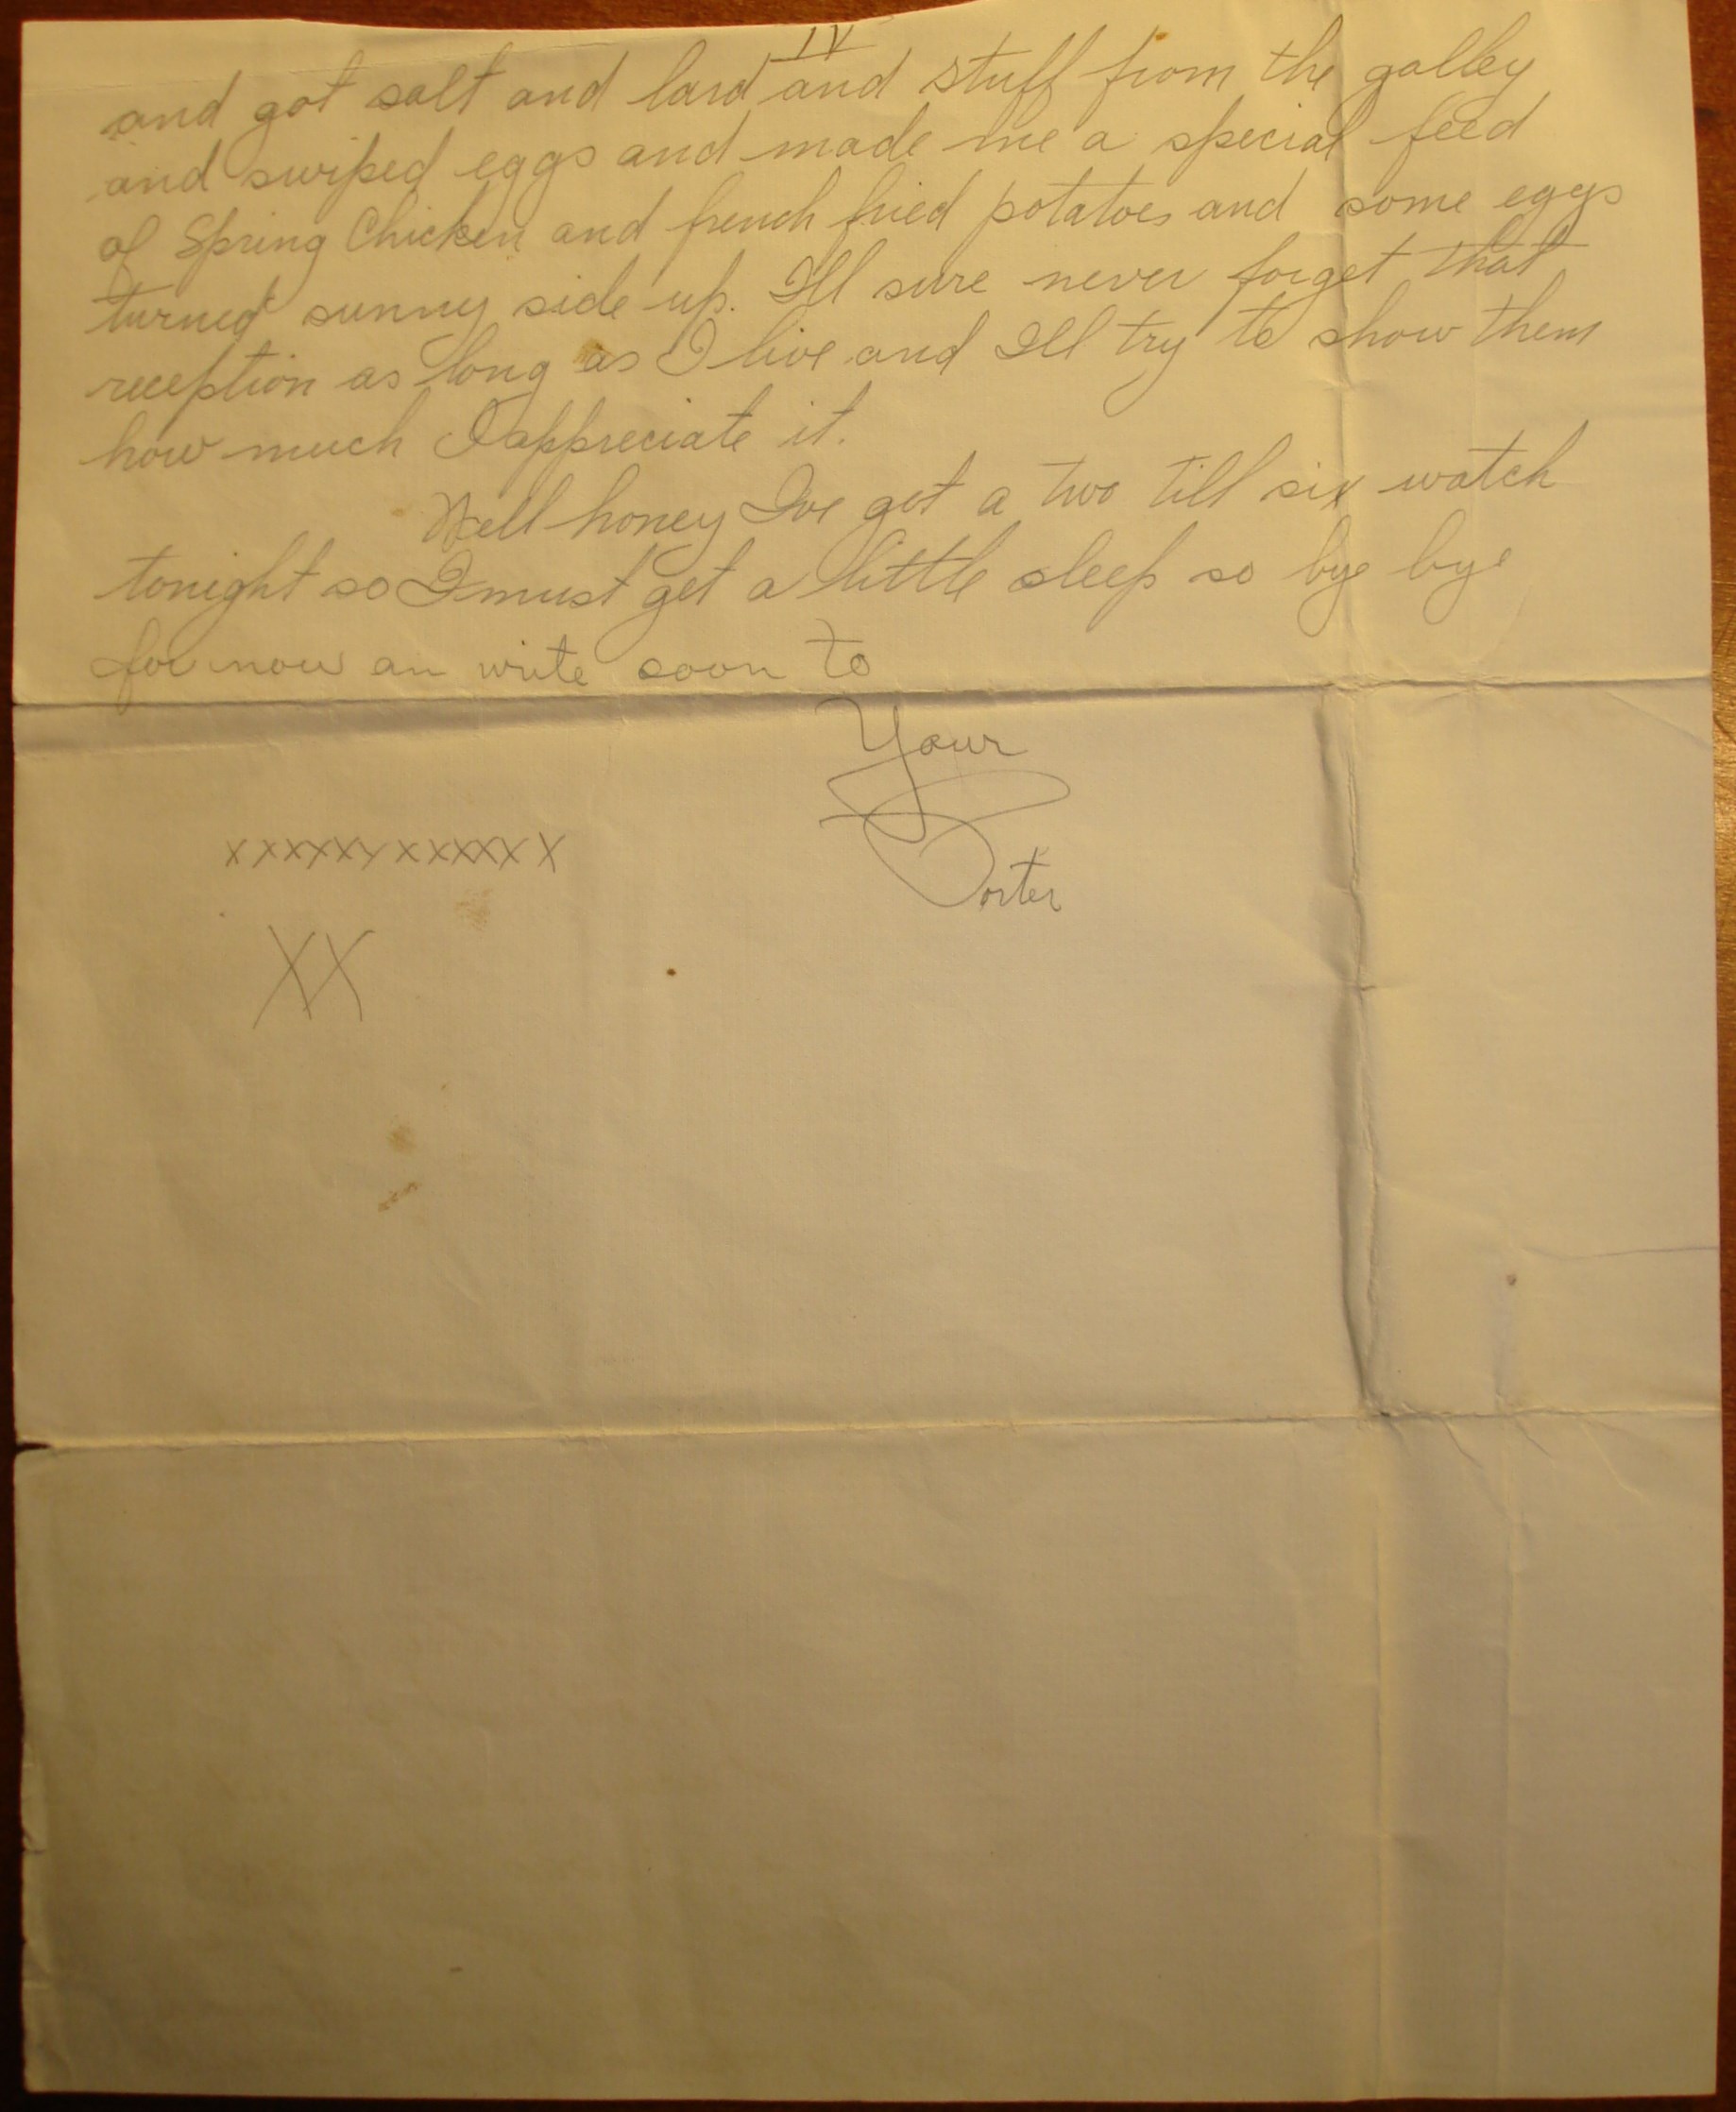 IV
and got salt and lard and stuff from the galley
and swiped eggs and made me a special feed
of Spring Chicken and french fried potatoes and some eggs
turned sunny side up. Ill sure never forget that
reception as long as I live and Ill try to show them
how much I appreciate it.
Well honey Ive got a two till six watch
tonight so I must get a little sleep so bye bye
for now an write soon to
Your
Porter
xxxxxyxxxxxxx
XX